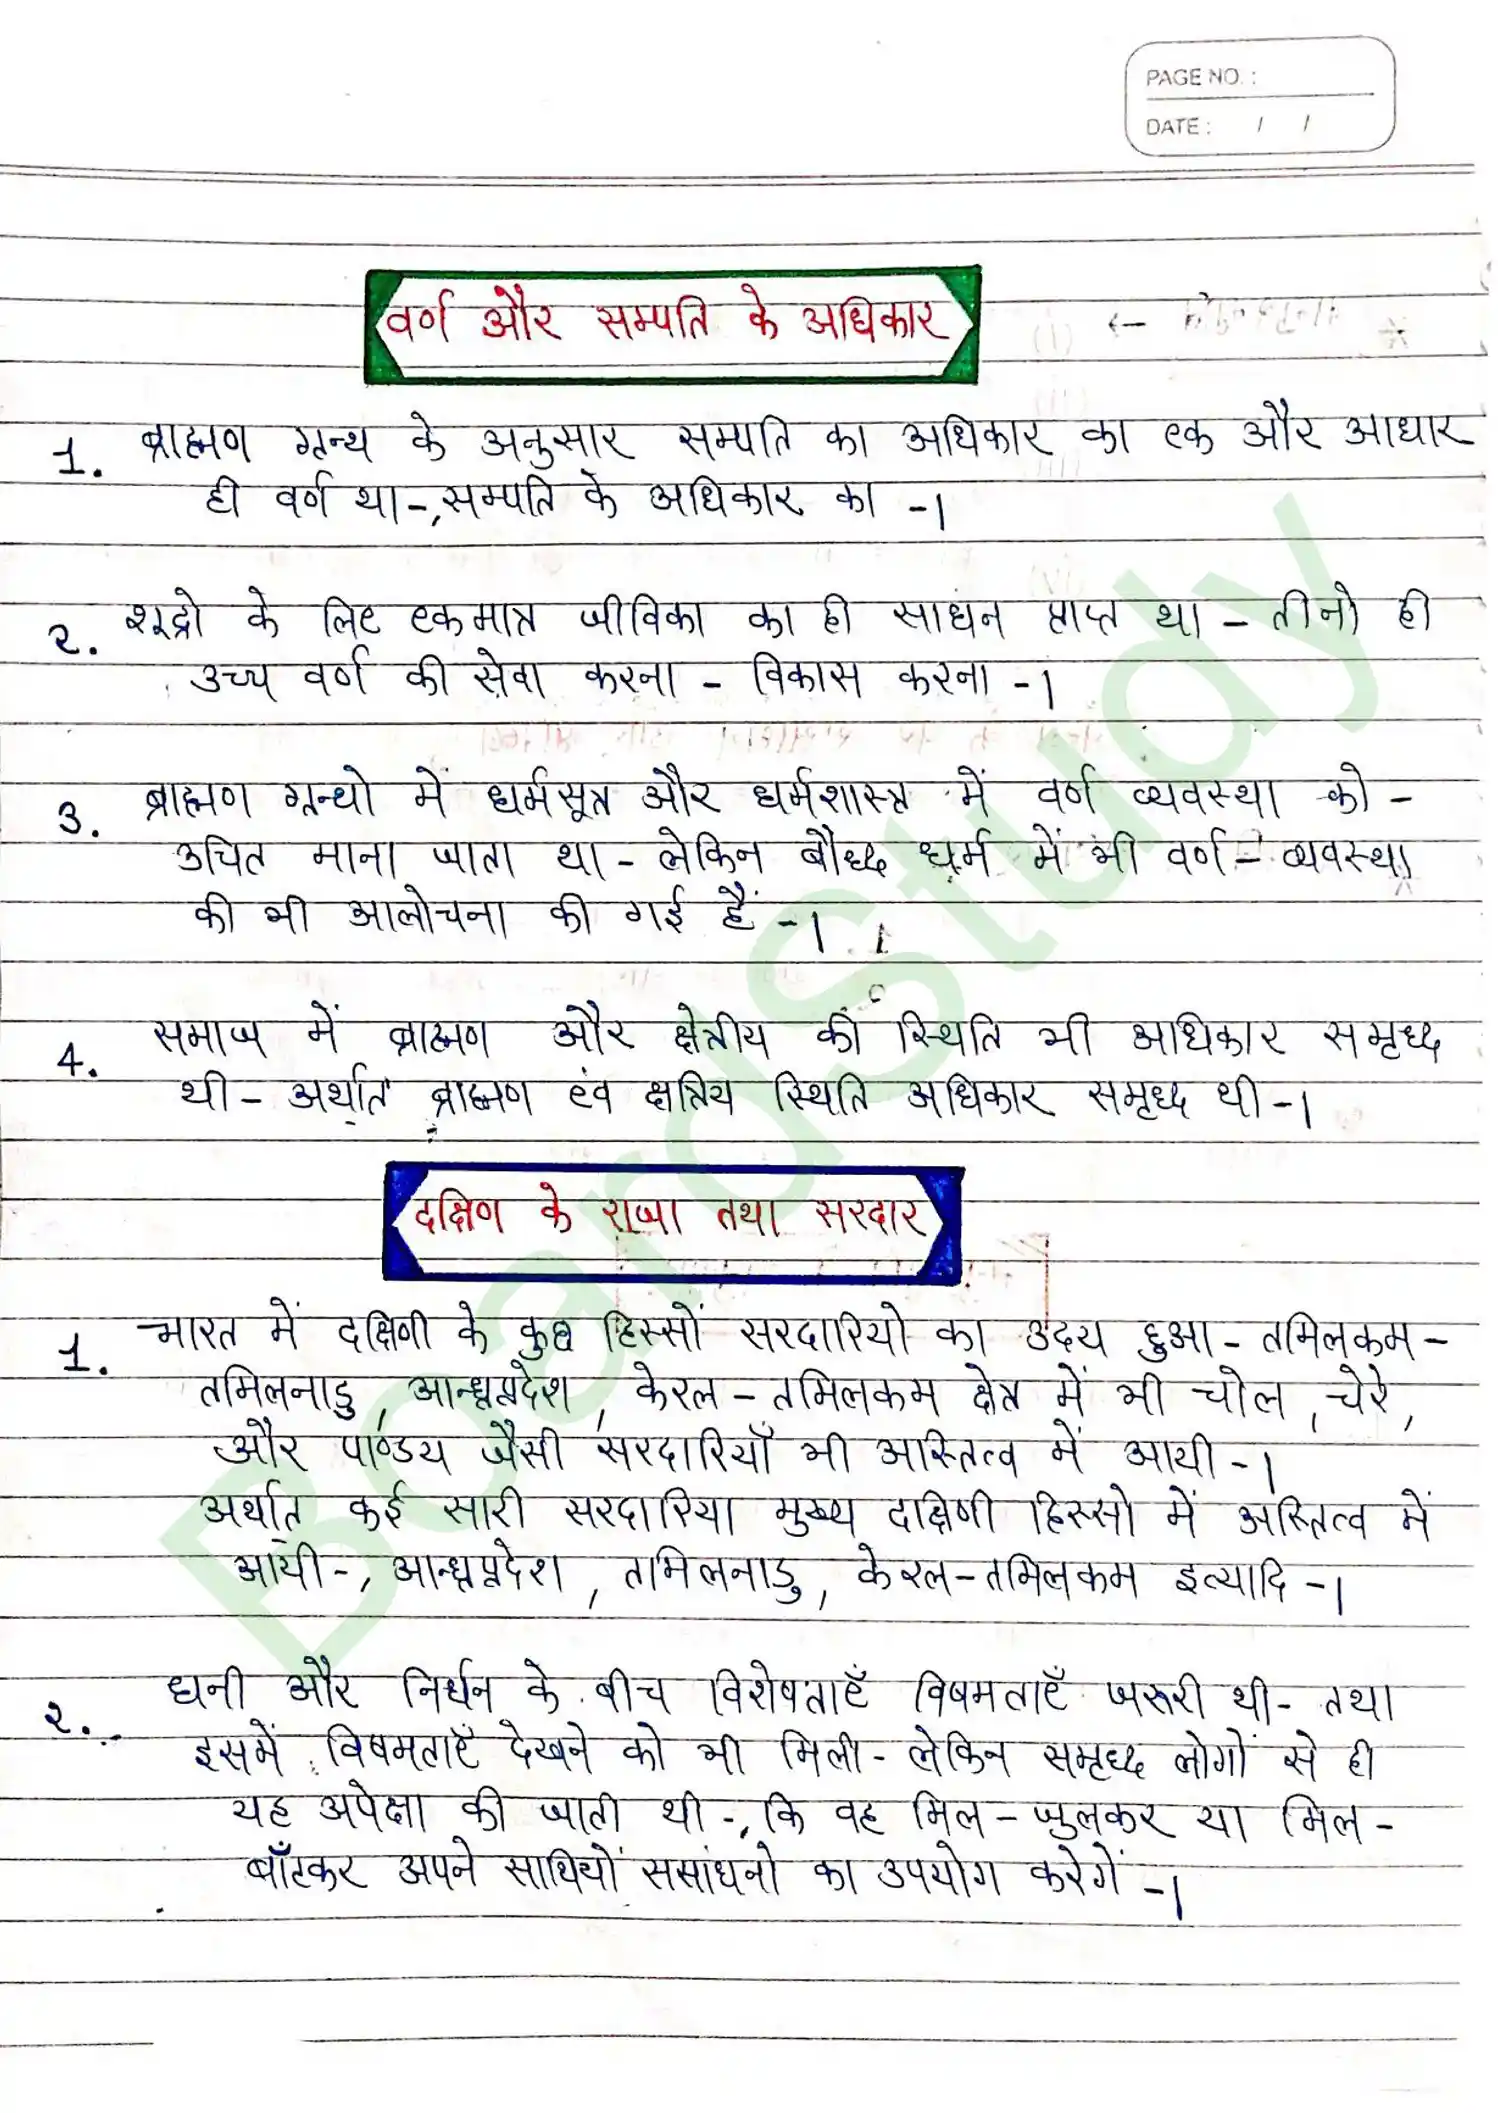 PAGE NO. :
DATE : / /
वर्ण और सम्पति के अधिकार
1. ब्राह्मण ग्रन्थ के अनुसार सम्पति का अधिकार का एक और आधार
ही वर्ण था-, सम्पति के अधिकार का -।
2. शूद्रो के लिए एकमात्र जीविका का ही साधन प्राप्त था - तीनो ही
उच्च वर्ण की सेवा करना - विकास करना -।
3. ब्राह्मण ग्रन्थो में धर्मसूत्र और धर्मशास्त्र में वर्ण व्यवस्था को -
उचित माना जाता था - लेकिन बौध्द धर्म में भी वर्ण - व्यवस्था
की भी आलोचना की गई हैं -।
4. समाज में ब्राह्मण और क्षेत्रीय की स्थिति भी अधिकार समृध्द
थी - अर्थात ब्राह्मण एंव क्षत्रिय स्थिति अधिकार समृध्द थी -।
दक्षिण के राजा तथा सरदार
1. भारत में दक्षिणी के कुछ हिस्सों सरदारियो का उदय हुआ - तमिलकम -
तमिलनाडु, आन्ध्रप्रदेश, केरल - तमिलकम क्षेत्र में भी चोल, चेरे,
और पाण्डय जैसी सरदारियाँ भी अस्तित्व में आयी -।
अर्थात् कई सारी सरदारिया मुख्य दाक्षिणी हिस्सो में अस्तित्व में
आयी -, आन्ध्रप्रदेश, तमिलनाडु, केरल - तमिलकम इत्यादि -।
2. धनी और निर्धन के बीच विशेषताएँ विषमताएँ जरूरी थी - तथा
इसमें विषमताएँ देखने को भी मिली - लेकिन समृध्द लोगों से ही
यह अपेक्षा की जाती थी -, कि वह मिल - जुलकर या मिल -
बाँटकर अपने साथियों ससांधनो का उपयोग करेगें -।
BoardStudy